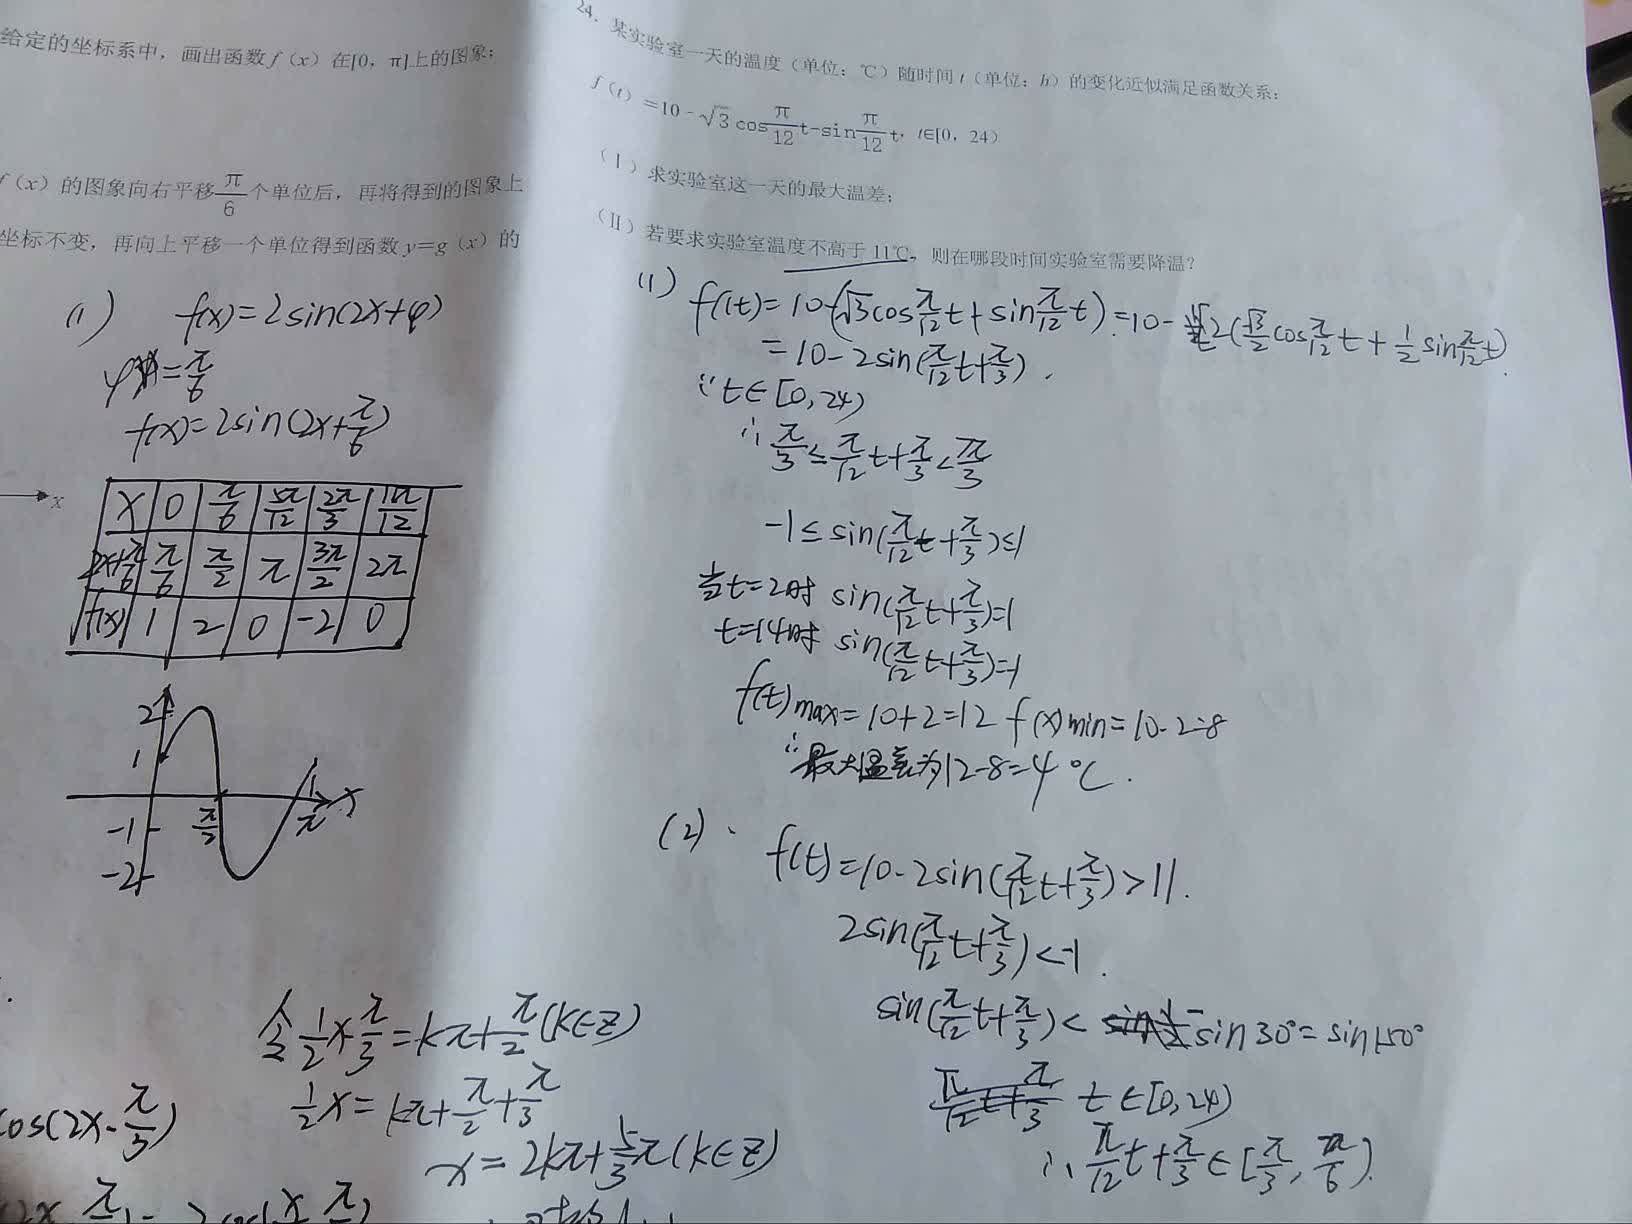 给定的坐标系中，画出函数f（x）在[0，π]上的图象；
f（x）的图象向右平移π/6个单位后，再将得到的图象上
坐标不变，再向上平移一个单位得到函数y=g（x）的
(1) f(x)=2sin(2x+φ)
φ=π/6
f(x)=2sin(2x+π/6)
x
x 0 π/6 5π/12 2π/3 11π/12
2x+π/6 π/6 π/2 π 3π/2 2π
f(x) 1 2 0 -2 0
2
1
π/2 π x
-1
-2
令 1/2 x π/3 = kπ+π/2 (k∈Z)
1/2 x = kπ+π/2+π/3
x = 2kπ+5/3π (k∈Z)
cos(2x-π/3)
24．某实验室一天的温度（单位：℃）随时间t（单位：h）的变化近似满足函数关系：
f（t）=10-√3cosπ/12t-sinπ/12t，t∈[0，24）
（Ⅰ）求实验室这一天的最大温差；
（Ⅱ）若要求实验室温度不高于11℃，则在哪段时间实验室需要降温？
(1) f(t)=10-(√3cosπ/12t+sinπ/12t)=10-2(√3/2cosπ/12t+1/2sinπ/12t).
=10-2sin(π/12t+π/3).
∵t∈[0,24)
∴π/3≤π/12t+π/3<7π/3
-1≤sin(π/12t+π/3)≤1
当t=2时 sin(π/12t+π/3)=1
t=14时 sin(π/12t+π/3)=-1
f(t)max=10+2=12 f(x)min=10-2=8
∴最大温差为12-8=4℃.
(2). f(t)=10-2sin(π/12t+π/3)>11.
2sin(π/12t+π/3)<-1.
sin(π/12t+π/3)<-sin30°=sin150°
t∈[0,24)
∴π/12t+π/3∈[π/3,